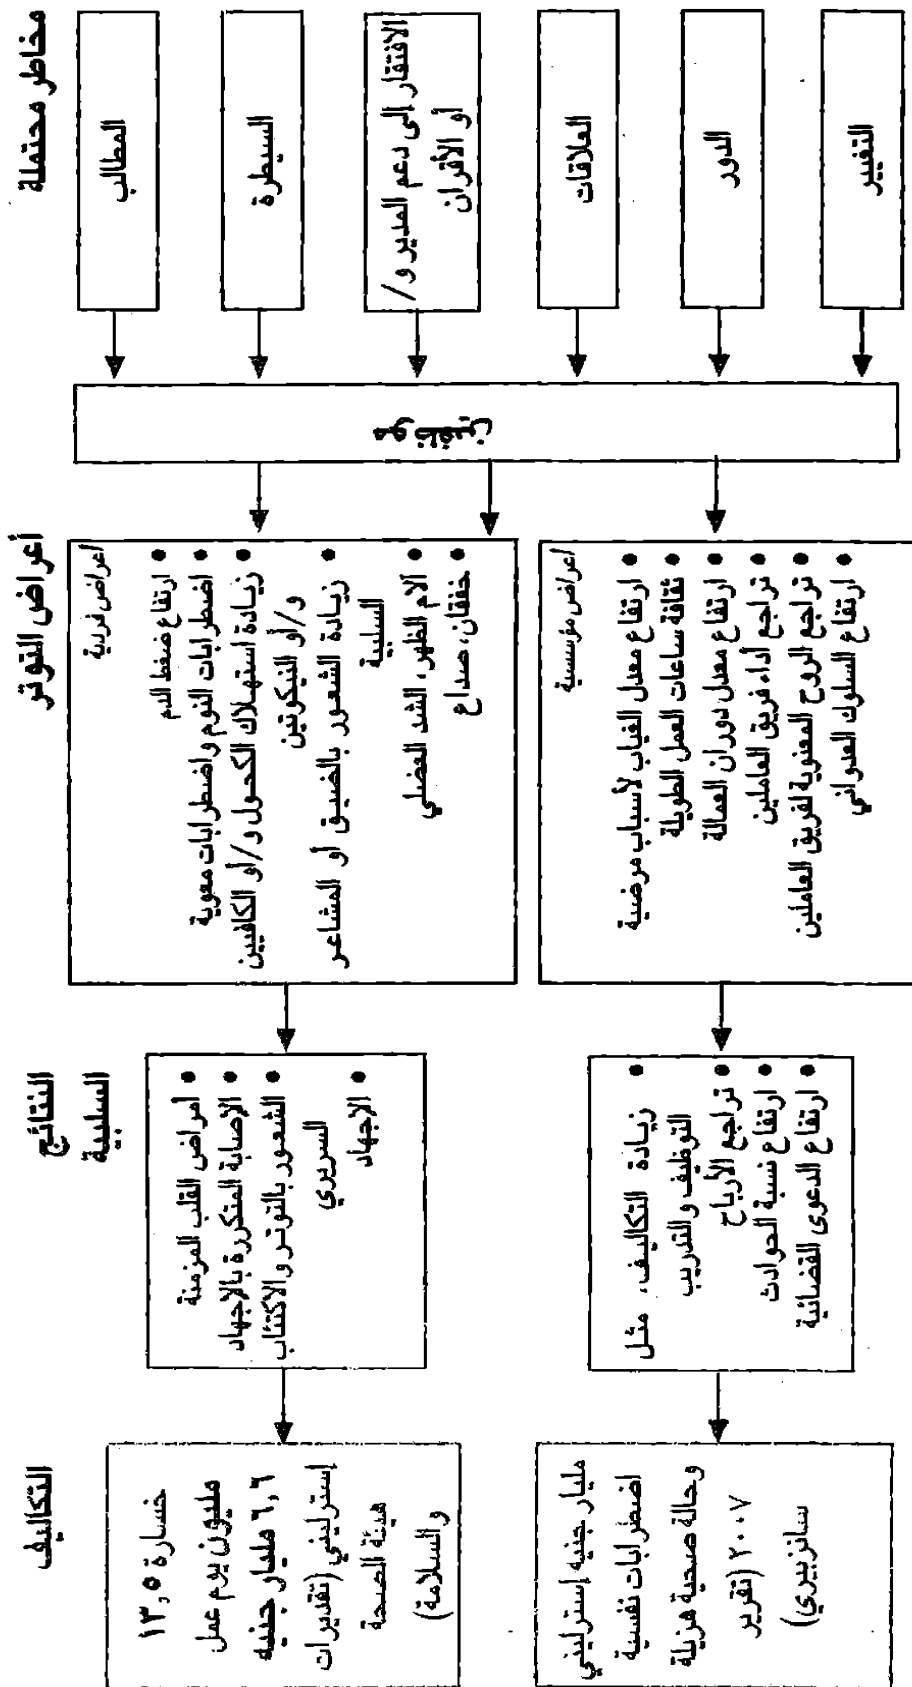 مخاطر محتملة
المطالب
السيطرة
الافتقار إلى دعم المدير و/
أو الأقران
العلاقات
الدور
التغيير
أعراض التوتر
أعراض فردية
• ارتفاع ضغط الدم
• اضطرابات النوم واضطرابات معوية
• زيادة استهلاك الكحول و/أو الكافيين
و/أو النيكوتين
• زيادة الشعور بالضيق أو المشاعر
السلبية
• آلام الظهر، الشد العضلي
• خفقان، صداع
أعراض مؤسسية
• ارتفاع معدل الغياب لأسباب مرضية
• ثقافة ساعات العمل الطويلة
• ارتفاع معدل دوران العمالة
• تراجع أداء فريق العاملين
• تراجع الروح المعنوية لفريق العاملين
• ارتفاع السلوك العدواني
النتائج
السلبية
• أمراض القلب المزمنة
• الإصابة المتكررة بالإجهاد
• الشعور بالتوتر والاكتئاب
السريري
• الاجهاد
• زيادة التكاليف، مثل
التوظيف والتدريب
• تراجع الأرباح
• ارتفاع نسبة الحوادث
• ارتفاع الدعوى القضائية
التكاليف
خسارة ١٣,٥
مليون يوم عمل
٦,٦ مليار جنيه
إسترليني (تقديرات
هيئة الصحة
والسلامة)
مليار جنيه إسترليني
اضطرابات نفسية
وحالة صحية هزيلة
٢٠٠٧ (تقرير
سانزبيري)